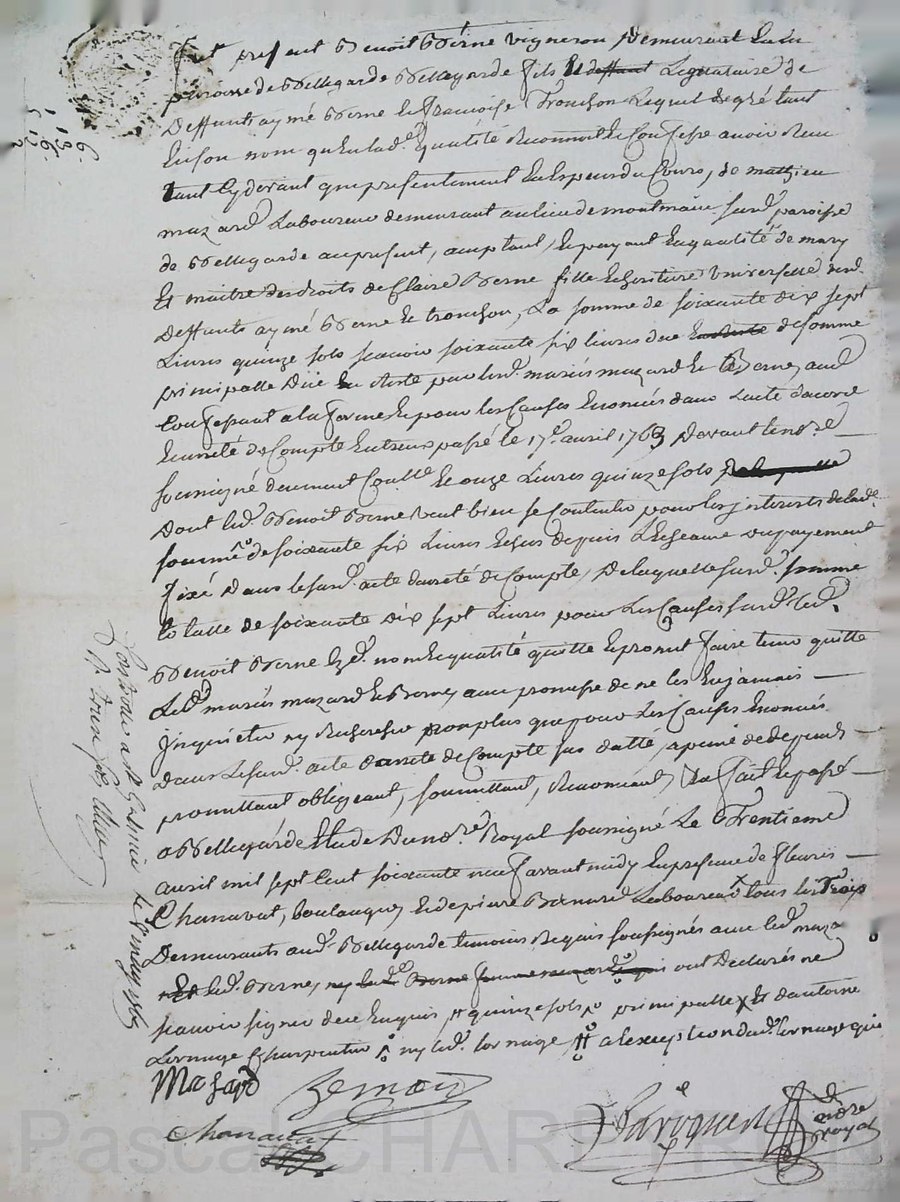 Fut present Benoit Berne vigneron demeurant en la
paroisse de Bellegarde Bellegarde fils et deffunt Legataire de
Deffunts aymé Berne et françoise Tronchon Lequel de gré tant
En son nom qu'en lad. qualité Reconnoit et Confesse avoir Receu
tant Cy devant que presentement En Especes du Cours, de mathieu
mazard Laboureur demeurant au lieu de montmain surd. paroisse
de Bellegarde au present, acceptant, et payant En qualité de mary
Et maitre des droits de Claire Berne fille Et heritiere Universelle desd.
Deffunts aymé Berne et tronchon, La somme de soixante dix sept
Livres quinze sols scavoir soixante six livres due de somme
principalle Düe En Reste par lesd. mariés mazard Et Berne, aud.
Confessant a la forme et pour les Causes Enoncés dans l'acte d'accord
Et areté de Compte Entreux passé le 17e. avril 1763 pardevant le no.re
soussigné duement Conllé et onze Livres quinze sols
Dont led. Benoit Berne veut bien se Contenter pour les jnterests de lad.
somme de soixante six Livres Echus depuis l'Echeance du payement
fixé Dans le surd. acte d'areté de Compte, De laquelle surd. somme
totalle de soixante dix sept Livres pour Les Causes surd. led.
Benoit Berne Ezd. nom et qualité quitte et promet faire tenir quitte
Lesd. mariés mazard et Berne, avec promesse de ne les En jamais
jnquieter ny Rechercher non plus que pour Les Causes Enoncés
dans Le surd. acte d'areté de Compte sus datté, a peine de depens
promettant obligeant, soumettant, Renonceant, &a fait et passé
a Bellegarde Etude Du no.re Royal soussigné Le Trentieme
avril mil sept Cent soixante neuf avant midy En presence de fleuris
Chanavat, boulanger, Et de pierre Bernard Laboureur x tous les trois
Demeurants aud. Bellegarde temoins Requis soussignés avec led. mazard
led. Berne, ont Declarés ne
scavoir signer de ce Enquis # quinze sols principalle x Et d'antoine
Lornage Charpentier ny led. Lornage # a l'exception dud. Lornage qui
Mazard
Bernard
Chanavat
no.re
Royal
Controllé a St Galmier le 8 may 1769
Pascal CHAR